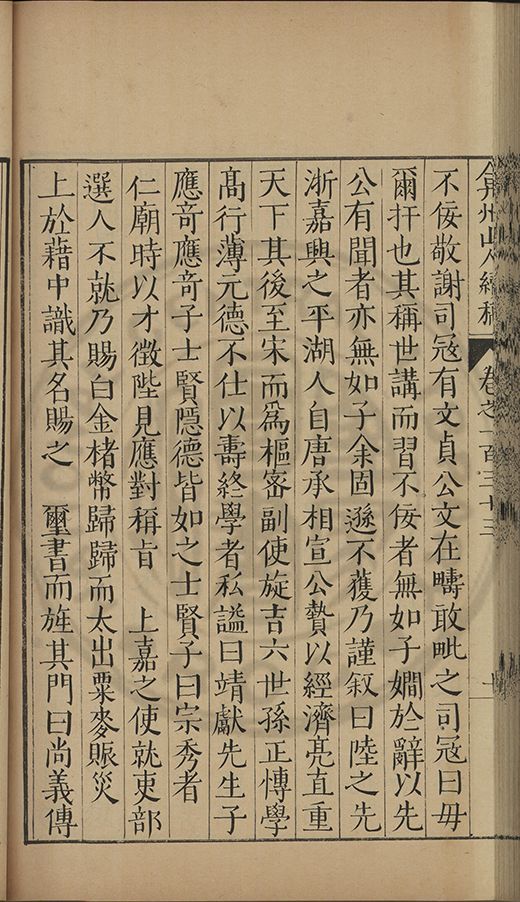 弇州山人續稿 卷之一百三十三 十
不佞敬謝司寇有文貞公文在疇敢毗之司寇曰毋
爾扞也其稱世講而習不佞者無如子嫺於辭以先
公有聞者亦無如子余固遜不獲乃謹叙曰陸之先
浙嘉興之平湖人自唐承相宣公贄以經濟亮直重
天下其後至宋而爲樞密副使旋吉六世孫正慱學
髙行薄元德不仕以壽終學者私謚曰靖獻先生子
應竒應竒子士賢隱德皆如之士賢子曰宗秀者
仁廟時以才徵陛見應對稱㫖 上嘉之使就吏部
選人不就乃賜白金楮幣歸歸而太出粟麥賑災
上於藉中識其名賜之 璽書而旌其門曰尚義傳